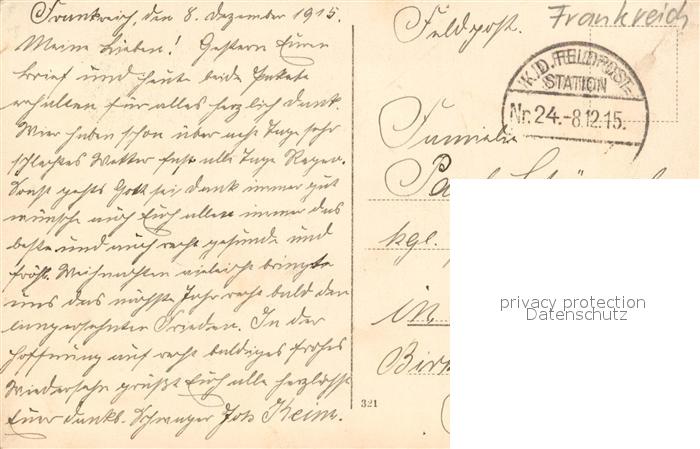 Frankreich, den 8. Dezember 1915.
Meine Lieben! Gestern Euren
Brief und heute beide Pakete
erhalten für alles herzlich Dank.
Wir haben schon über acht Tage sehr
schlechtes Wetter fast alle Tage Regen.
Sonst gehts Gott sei Dank immer gut
wünsche auch Euch allen immer das
beste und auch recht gesunde und
fröhl. Weihnachten vieleicht bringt
uns das nächste Jahr recht bald den
langersehnten Frieden. In der
Hoffnung auf recht baldiges frohes
Wiedersehn grüßt Euch alle herzlichst
Euer dankb. Schwager Joh Keim.
Feldpost.
Frankreich
K.D. FELDPOST-
STATION
Nr. 24. -8.12.15.
Familie
kgl.
in
321
privacy protection
Datenschutz